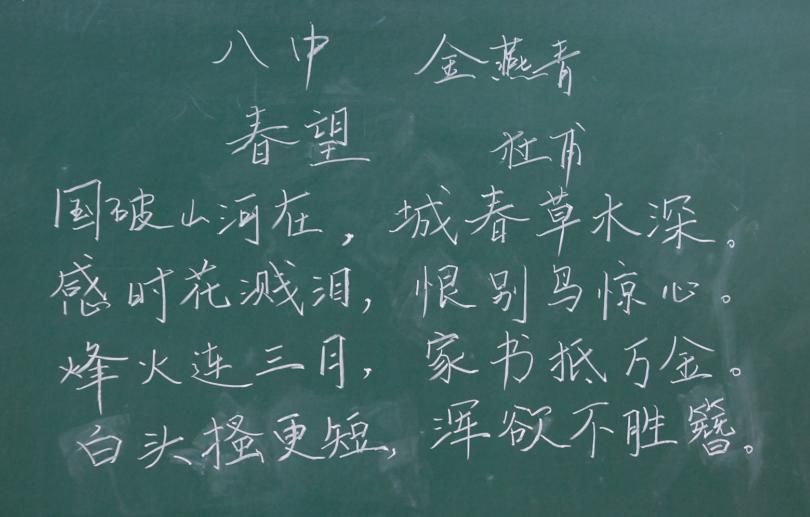 八中 金燕青
春望 杜甫
国破山河在，城春草木深。
感时花溅泪，恨别鸟惊心。
烽火连三月，家书抵万金。
白头搔更短，浑欲不胜簪。